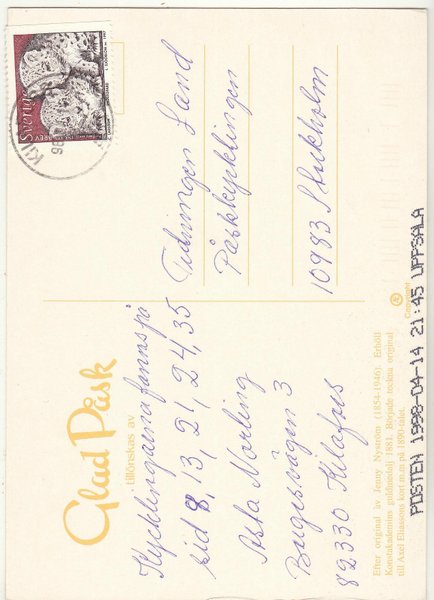 Glad Påsk
tillönskas av
Kycklingarna fanns på
sid 8, 13, 21, 24, 35
Asta Norling
82330 Kilafors
Tidningen Land
Påskkycklingen
10983 Stockholm
Sverige
Copyright
Efter original av Jenny Nyström (1854-1946). Erhöll
Konstakademins guldmedalj 1881. Började teckna original
till Axel Eliassons kort m.m på 1890-talet.
POSTEN 1998-04-14 21:45 UPPSALA